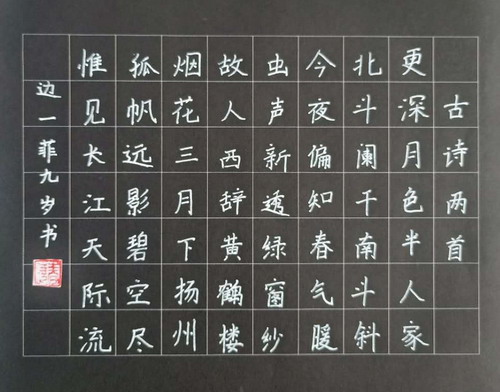 古诗两首
更深月色半人家
北斗阑干南斗斜
今夜偏知春气暖
虫声新透绿窗纱
故人西辞黄鹤楼
烟花三月下扬州
孤帆远影碧空尽
惟见长江天际流
边一菲九岁书